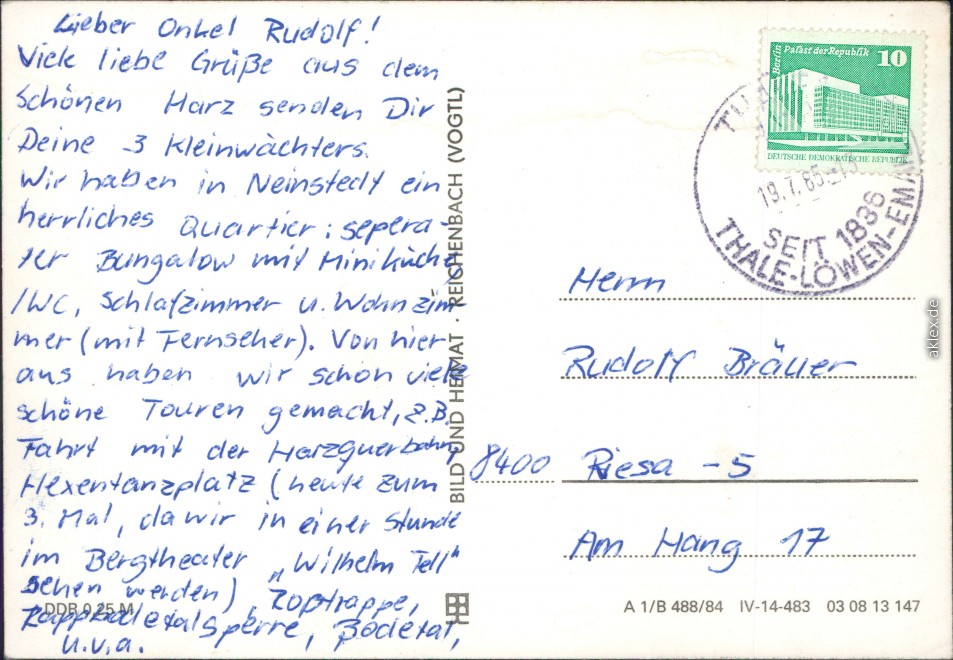 Lieber Onkel Rudolf!
Viele liebe Grüße aus dem
schönen Harz senden Dir
Deine 3 Kleinwächters.
Wir haben in Neinstedt ein
herrliches Quartier: sepera-
ter Bungalow mit Miniküche
/WC, Schlafzimmer u. Wohnzim-
mer (mit Fernseher). Von hier
aus haben wir schon viele
schöne Touren gemacht, z.B.
Fahrt mit der Harzquerbahn,
Hexentanzplatz (heute zum
3. Mal, da wir in einer Stunde
im Bergtheater „Wilhelm Tell"
sehen werden), Roßtrappe,
Rappbodetalsperre, Bodetal,
u.v.a.
DDR 0,25 M
BILD UND HEIMAT · REICHENBACH (VOGTL)
Berlin Palast der Republik 10
DEUTSCHE DEMOKRATISCHE REPUBLIK
19.7.85
SEIT 1836
THALE-LÖWEN-EMAIL
Herrn
Rudolf Bräuer
8400 Riesa -5
Am Hang 17
A 1/B 488/84 IV-14-483 03 08 13 147
aklex.de